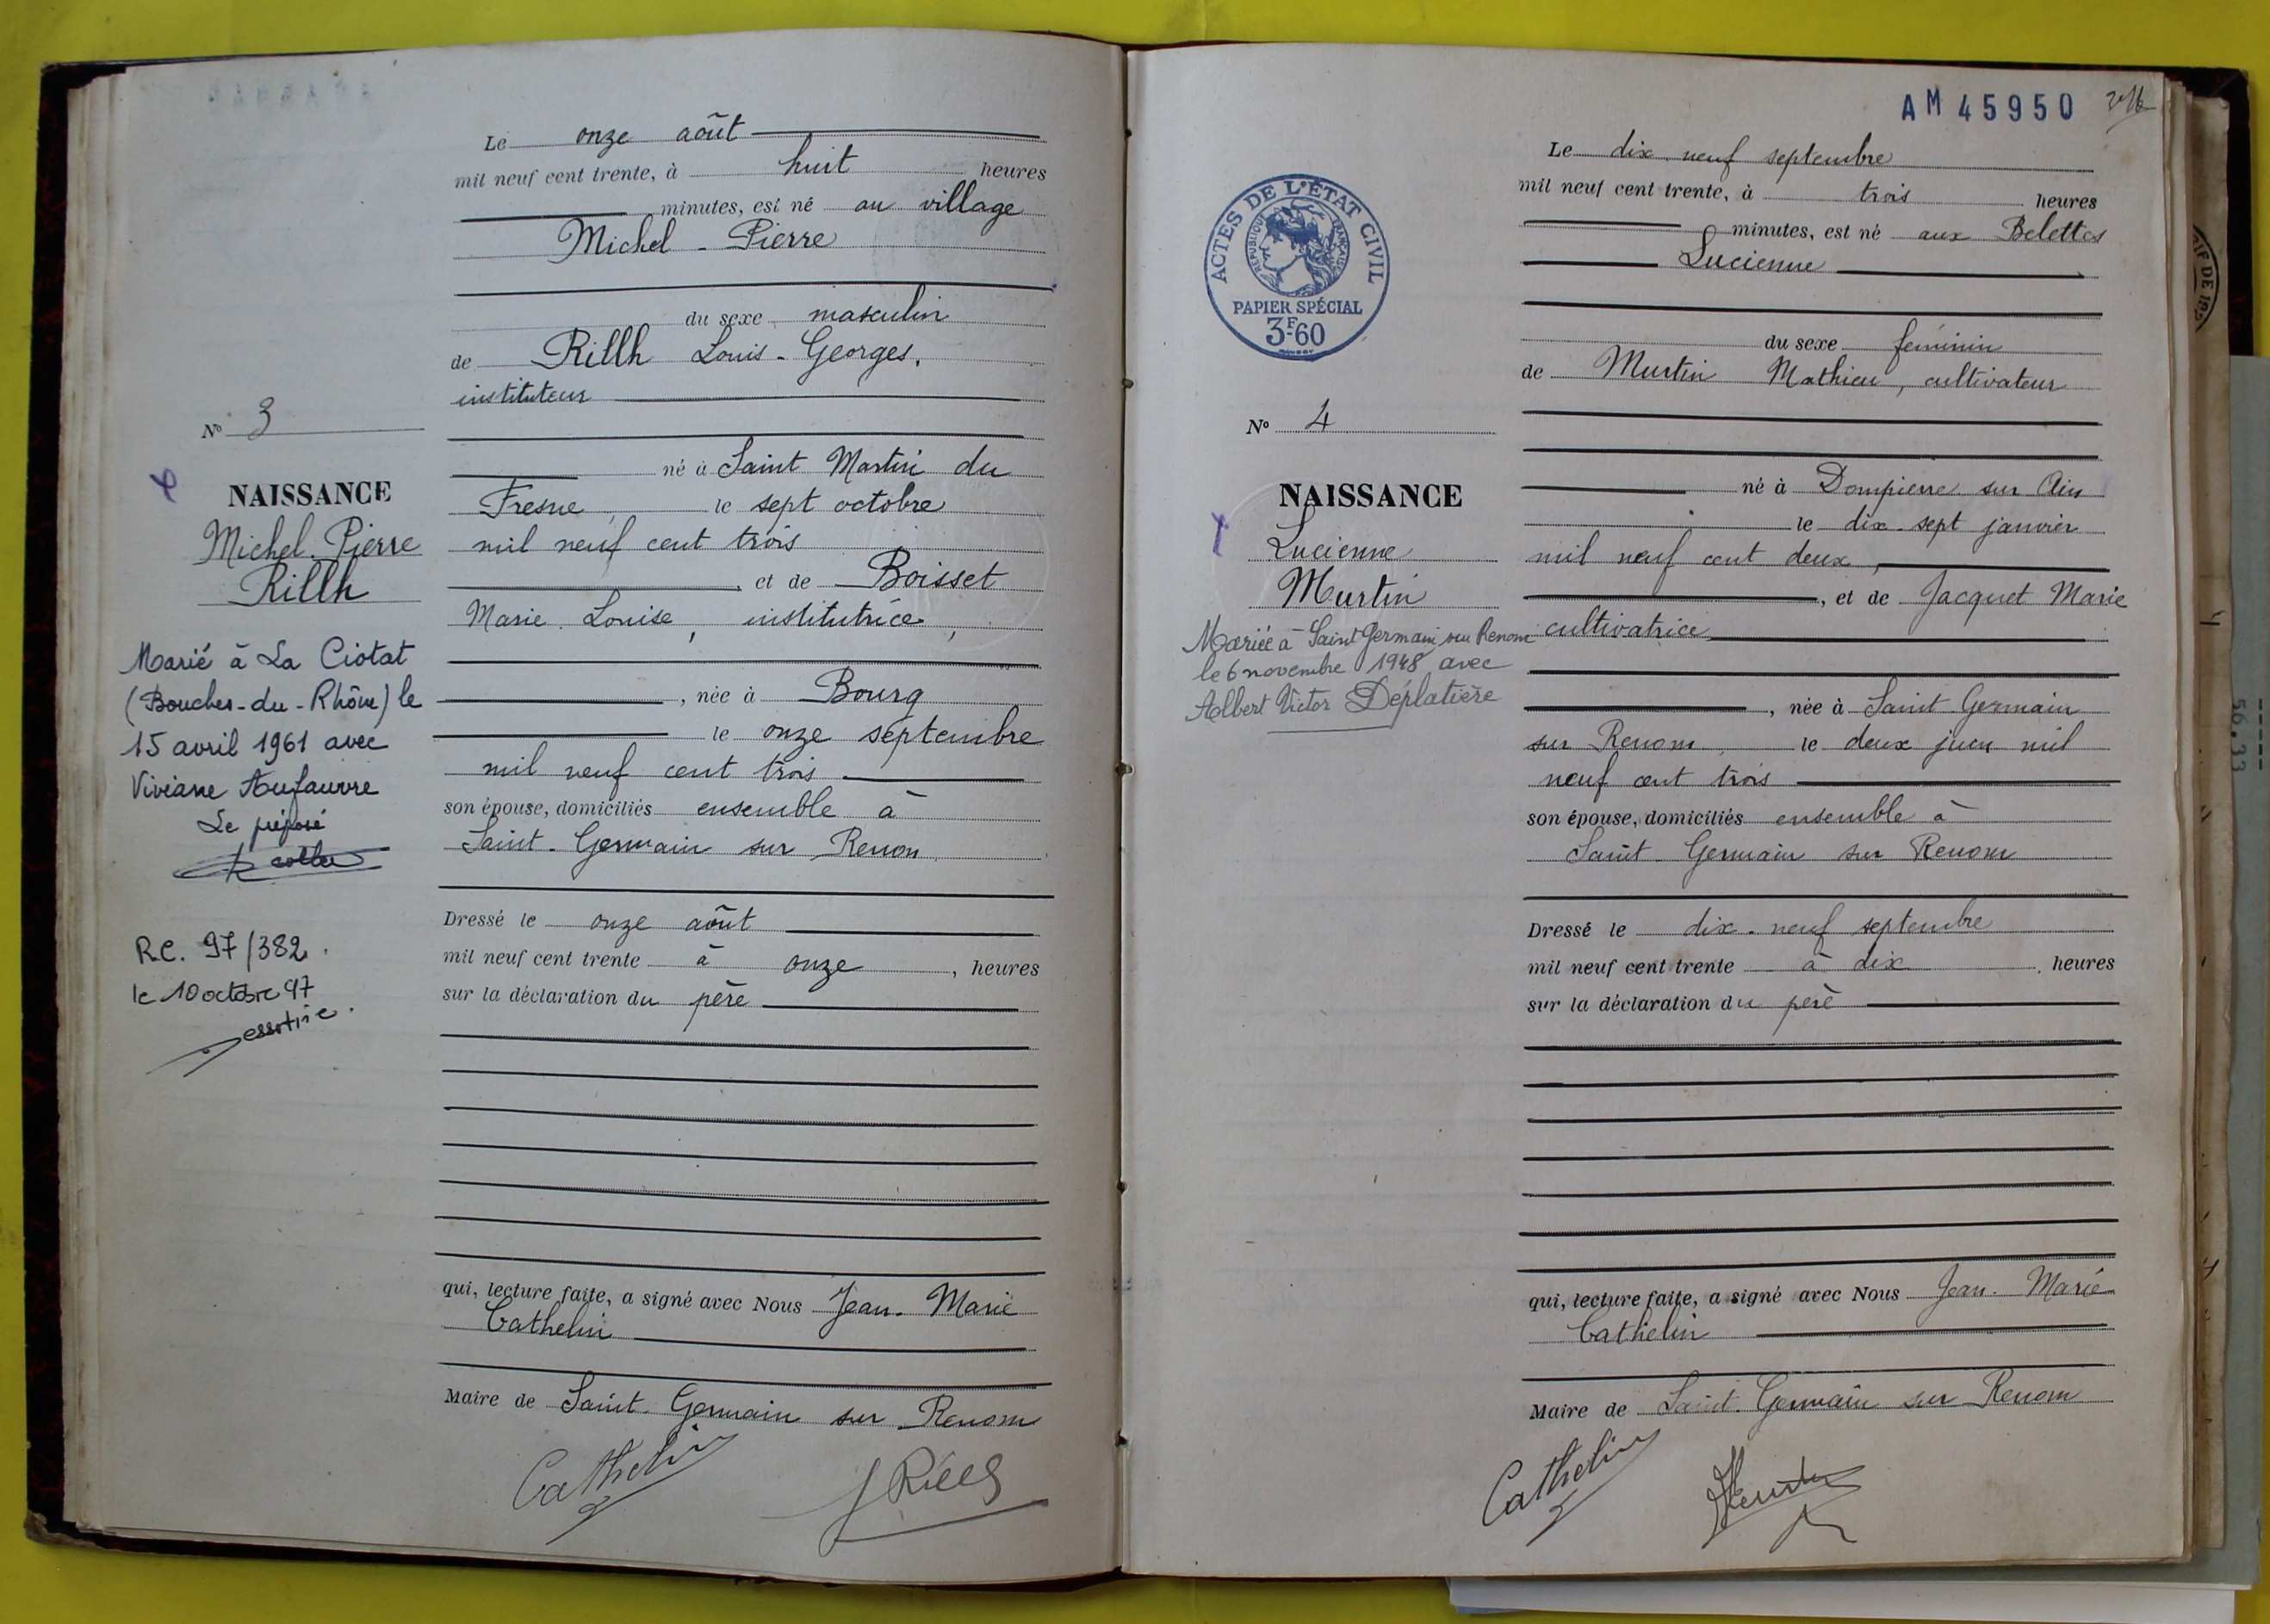 Le onze août
mil neuf cent trente, à huit heures
minutes, est né au village
Michel - Pierre
du sexe masculin
de Rillh Louis - Georges,
instituteur
né à Saint Martin du
Fresne, le sept octobre
mil neuf cent trois
et de Boisset
Marie Louise, institutrice,
, née à Bourg
le onze septembre
mil neuf cent trois
son épouse, domiciliés ensemble à
Saint - Germain sur Renon
Dressé le onze août
mil neuf cent trente à onze, heures
sur la déclaration du père
qui, lecture faite, a signé avec Nous Jean - Marie
Cathelin
Maire de Saint - Germain sur Renom
Cathelin
Nº 3
NAISSANCE
Michel - Pierre
Rillh
Marié à La Ciotat
(Bouches-du-Rhône) le
15 avril 1961 avec
Viviane Aufauvre
Le préposé
R.C. 97/382.
le 10 octobre 97
AM 45950
ACTES DE L'ÉTAT CIVIL
RÉPUBLIQUE FRANÇAISE
PAPIER SPÉCIAL
3F60
Nº 4
NAISSANCE
Lucienne
Murtin
Mariée à Saint Germain sur Renom
le 6 novembre 1948 avec
Albert Victor Déplatière
Le dix neuf septembre
mil neuf cent trente, à trois heures
minutes, est né aux Belettes
Lucienne
du sexe féminin
de Murtin Mathieu, cultivateur
né à Dompierre sur Ain
le dix-sept janvier
mil neuf cent deux,
, et de Jacquet Marie
cultivatrice
, née à Saint Germain
sur Renom, le deux juin mil
neuf cent trois
son épouse, domiciliés ensemble à
Saint - Germain sur Renom
Dressé le dix - neuf septembre
mil neuf cent trente à dix, heures
sur la déclaration du père
qui, lecture faite, a signé avec Nous Jean - Marie
Cathelin
Maire de Saint - Germain sur Renom
Cathelin